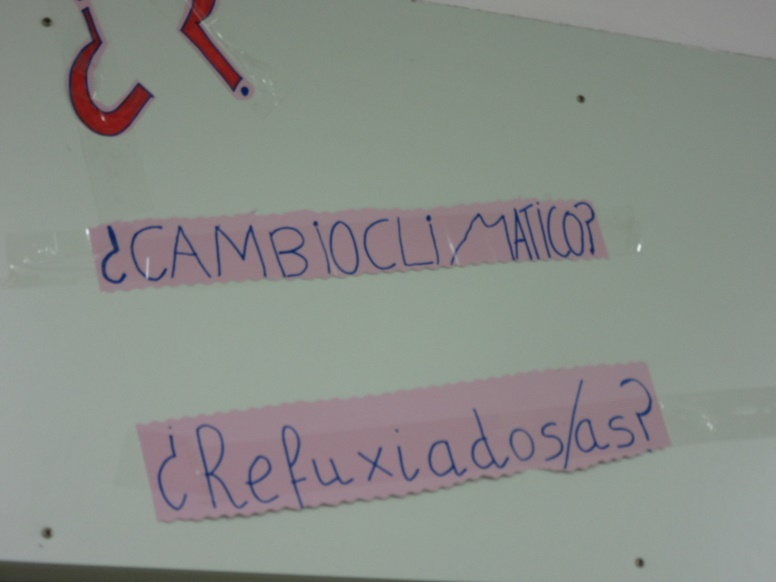 ¿CAMBIOCLiMATiCO?
¿Refuxiados/as?